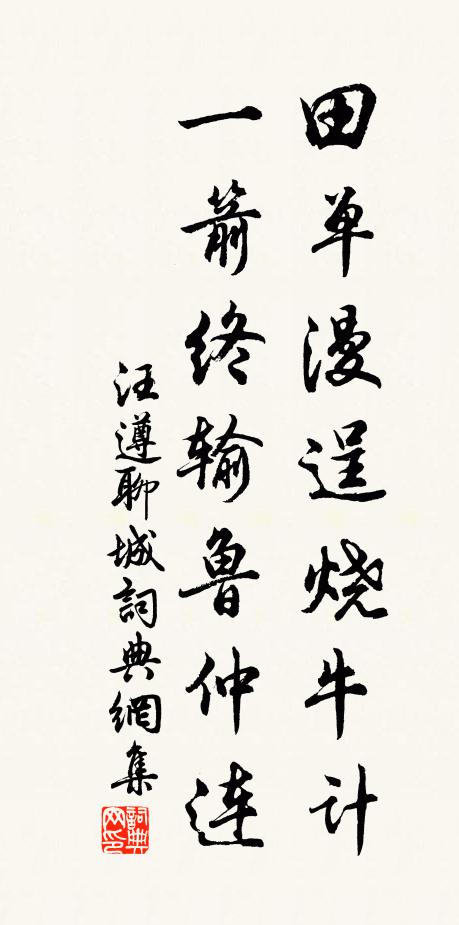 田单漫逞烧牛计
一箭终输鲁仲连
汪遵聊城詞典網集
詞典网印